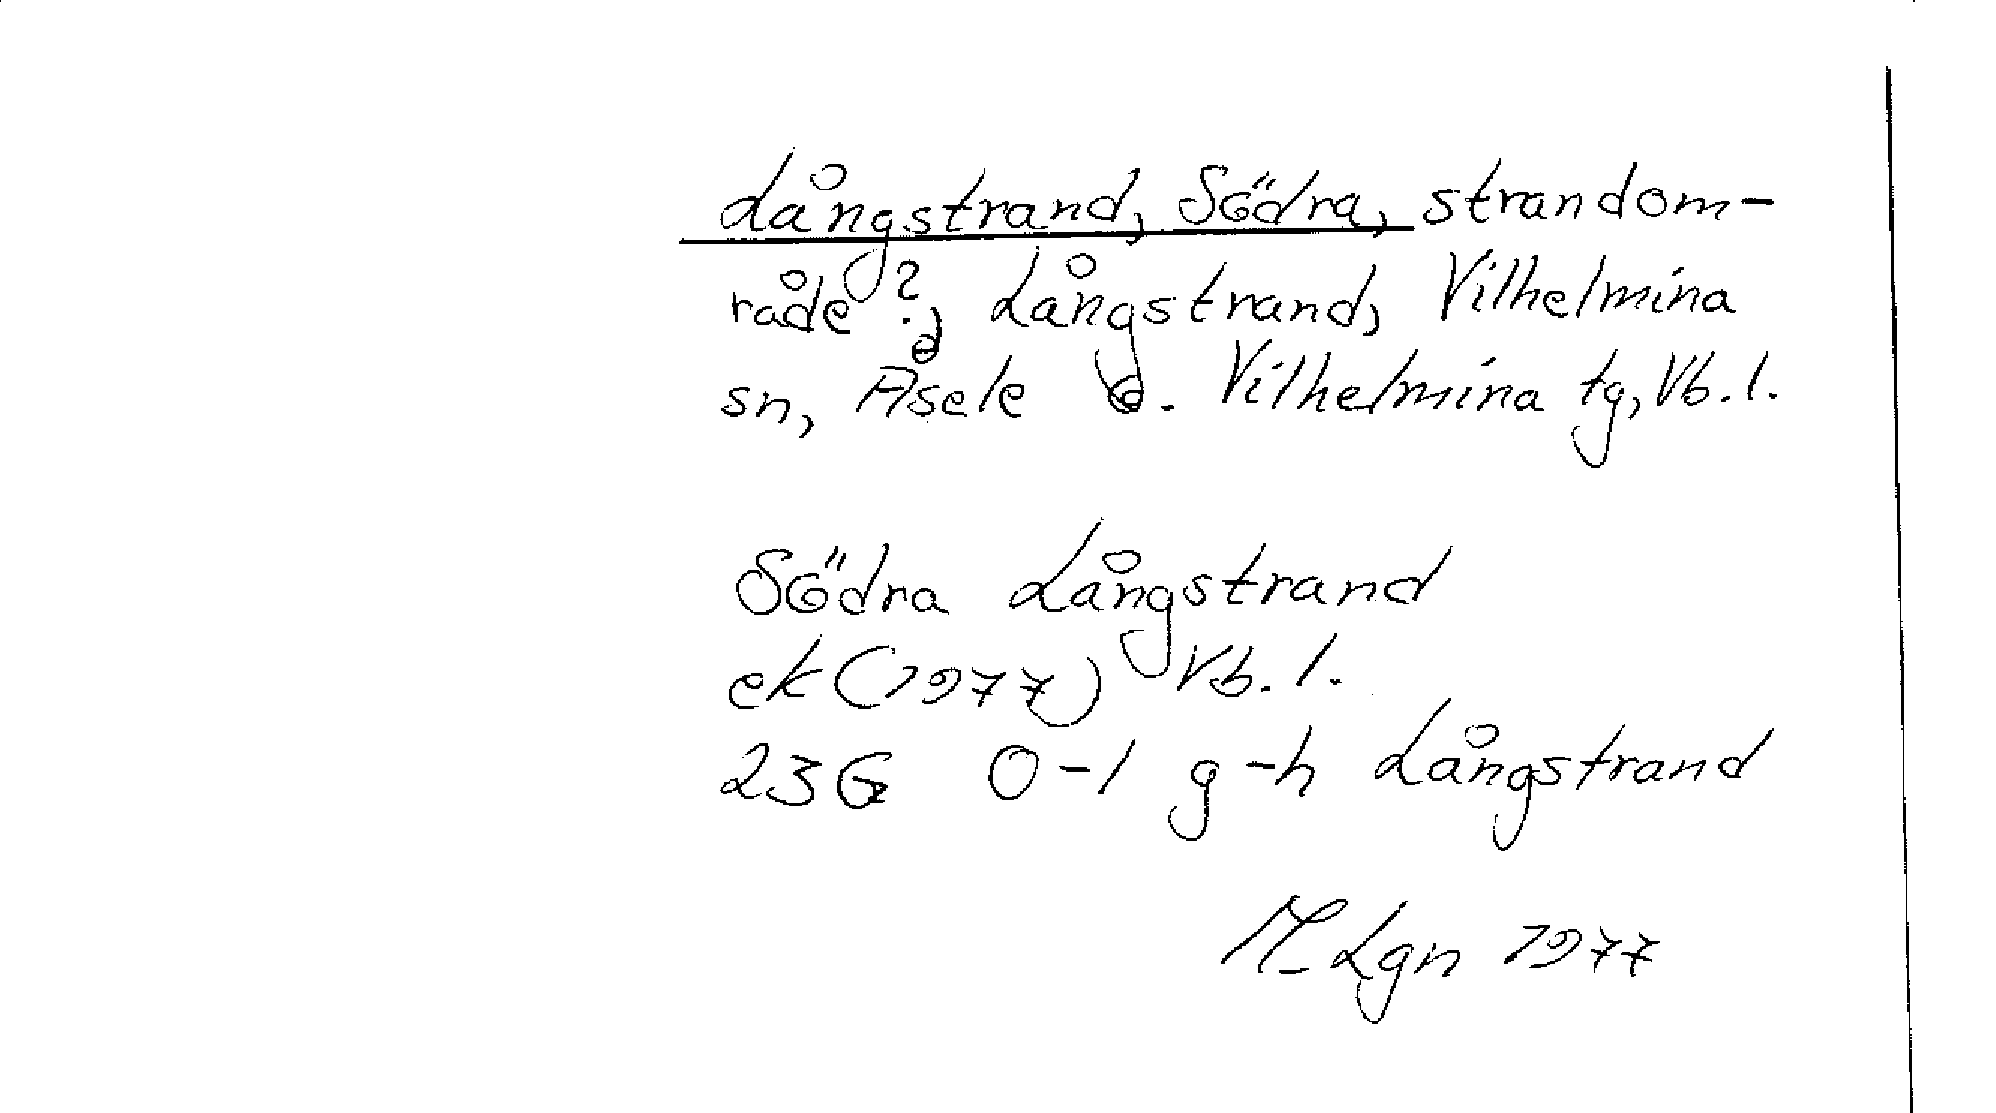 Långstrand, Södra, strandom-
råde?, Långstrand, Vilhelmina
sn, Åsele o. Vilhelmina tg, Vb. l.
Södra Långstrand
ek (1977) Vb. l.
23G 0-1 g-h Långstrand
M Lgn 1977